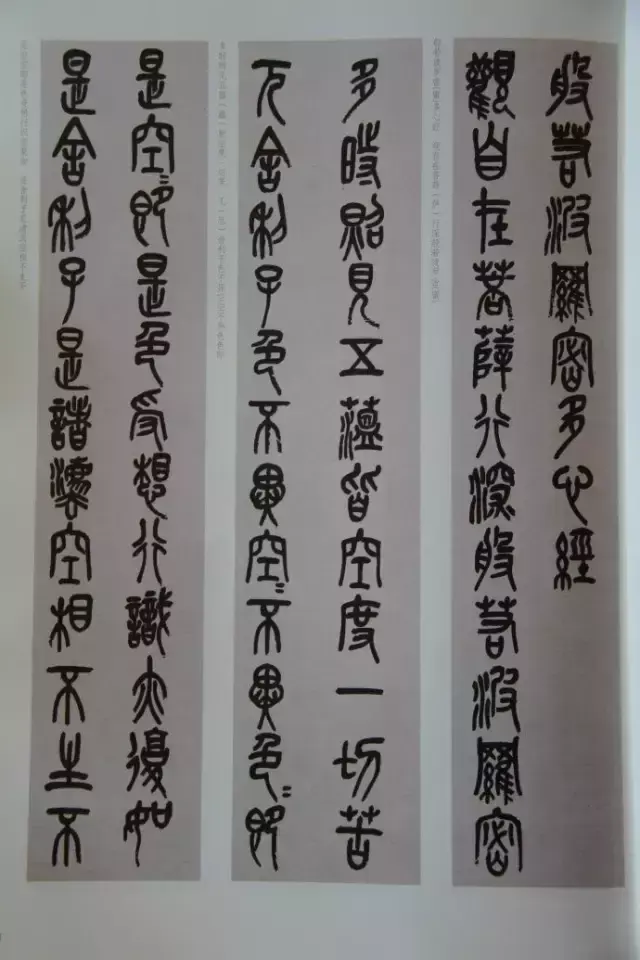 般若波羅密多心經
觀自在菩薩行深般若波羅密
多時照見五蘊皆空度一切苦
厄舍利子色不異空〻不異色〻即
是空〻即是色受想行識亦復如
是舍利子是諸灋空相不生不